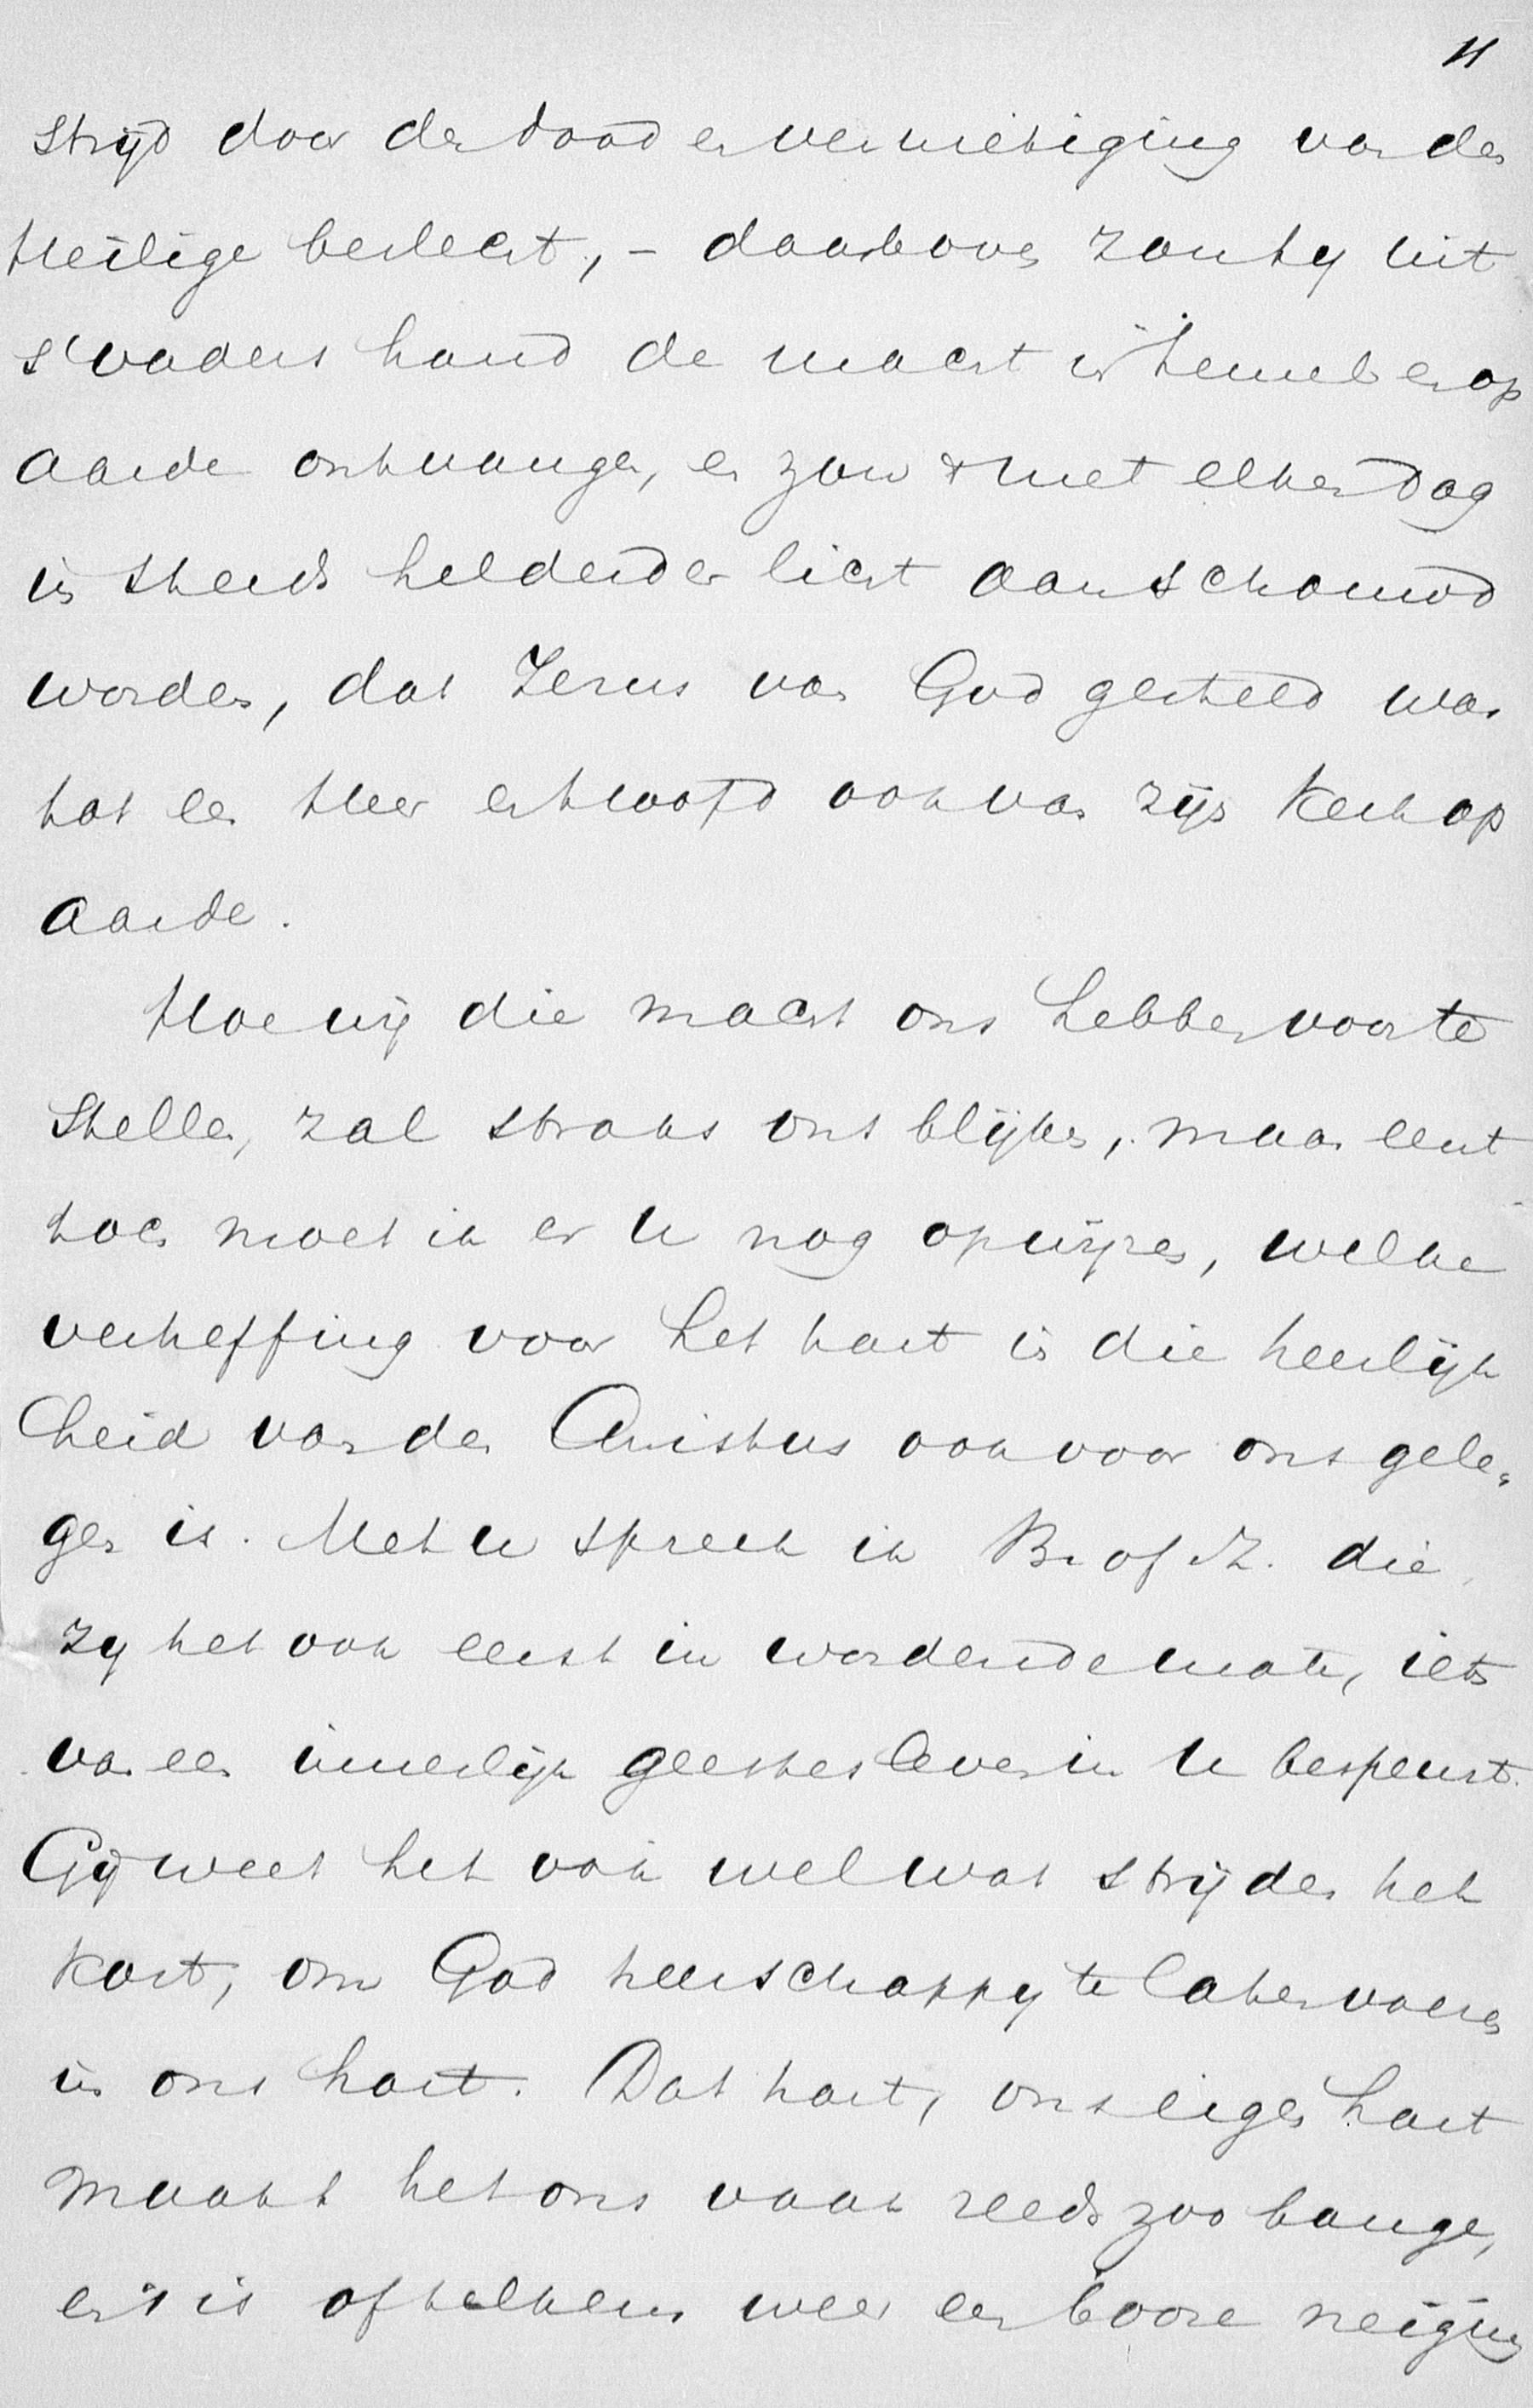 11
strijd door den dood en vernietiging van den
Heilige beslecht, – daarboven zou hy uit
s'vaders hand de macht in hemel en op
aarde ontvangen, en zou 't met elken dag
in steeds helderder licht aanschouwd
worden, dat Jezus van God gesteld was
tot een Heer en hoofd ook van zijn Kerk op
aarde.
Hoe wij die macht ons hebben voor te
stellen, zal straks ons blijken, maar eerst
toch moet ik er U nog op wijzen, welke
verheffing voor het hart in die heerlijk
heid van den Christus ook voor ons gele„
gen is. Met U spreek ik Br. of Z. die
zy het ook eerst in wordende mate, iets
van een innerlijk geestesleven in U bespeurt.
Gij weet het ook wel wat strijden het
kost, om God heerschappy te laten voeren
in ons hart. Dat hart, ons eigen hart
maakt het ons vaak reeds zoo bange,
en 't is of telkens weer een booze neiging